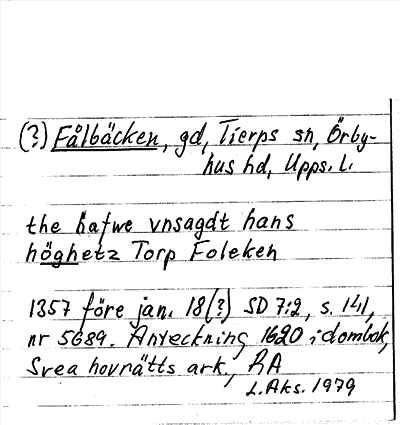 (?) Fålbäcken, gd, Tierps sn, Örby-
hus hd, Upps. l.
the hafwe vnsagdt hans
höghetz Torp Foleken
1357 före jan. 18(?) SD 7:2, s. 141,
nr 5689. Anteckning 1620 i dombok,
Svea hovrätts ark., RA
L. Aks. 1979